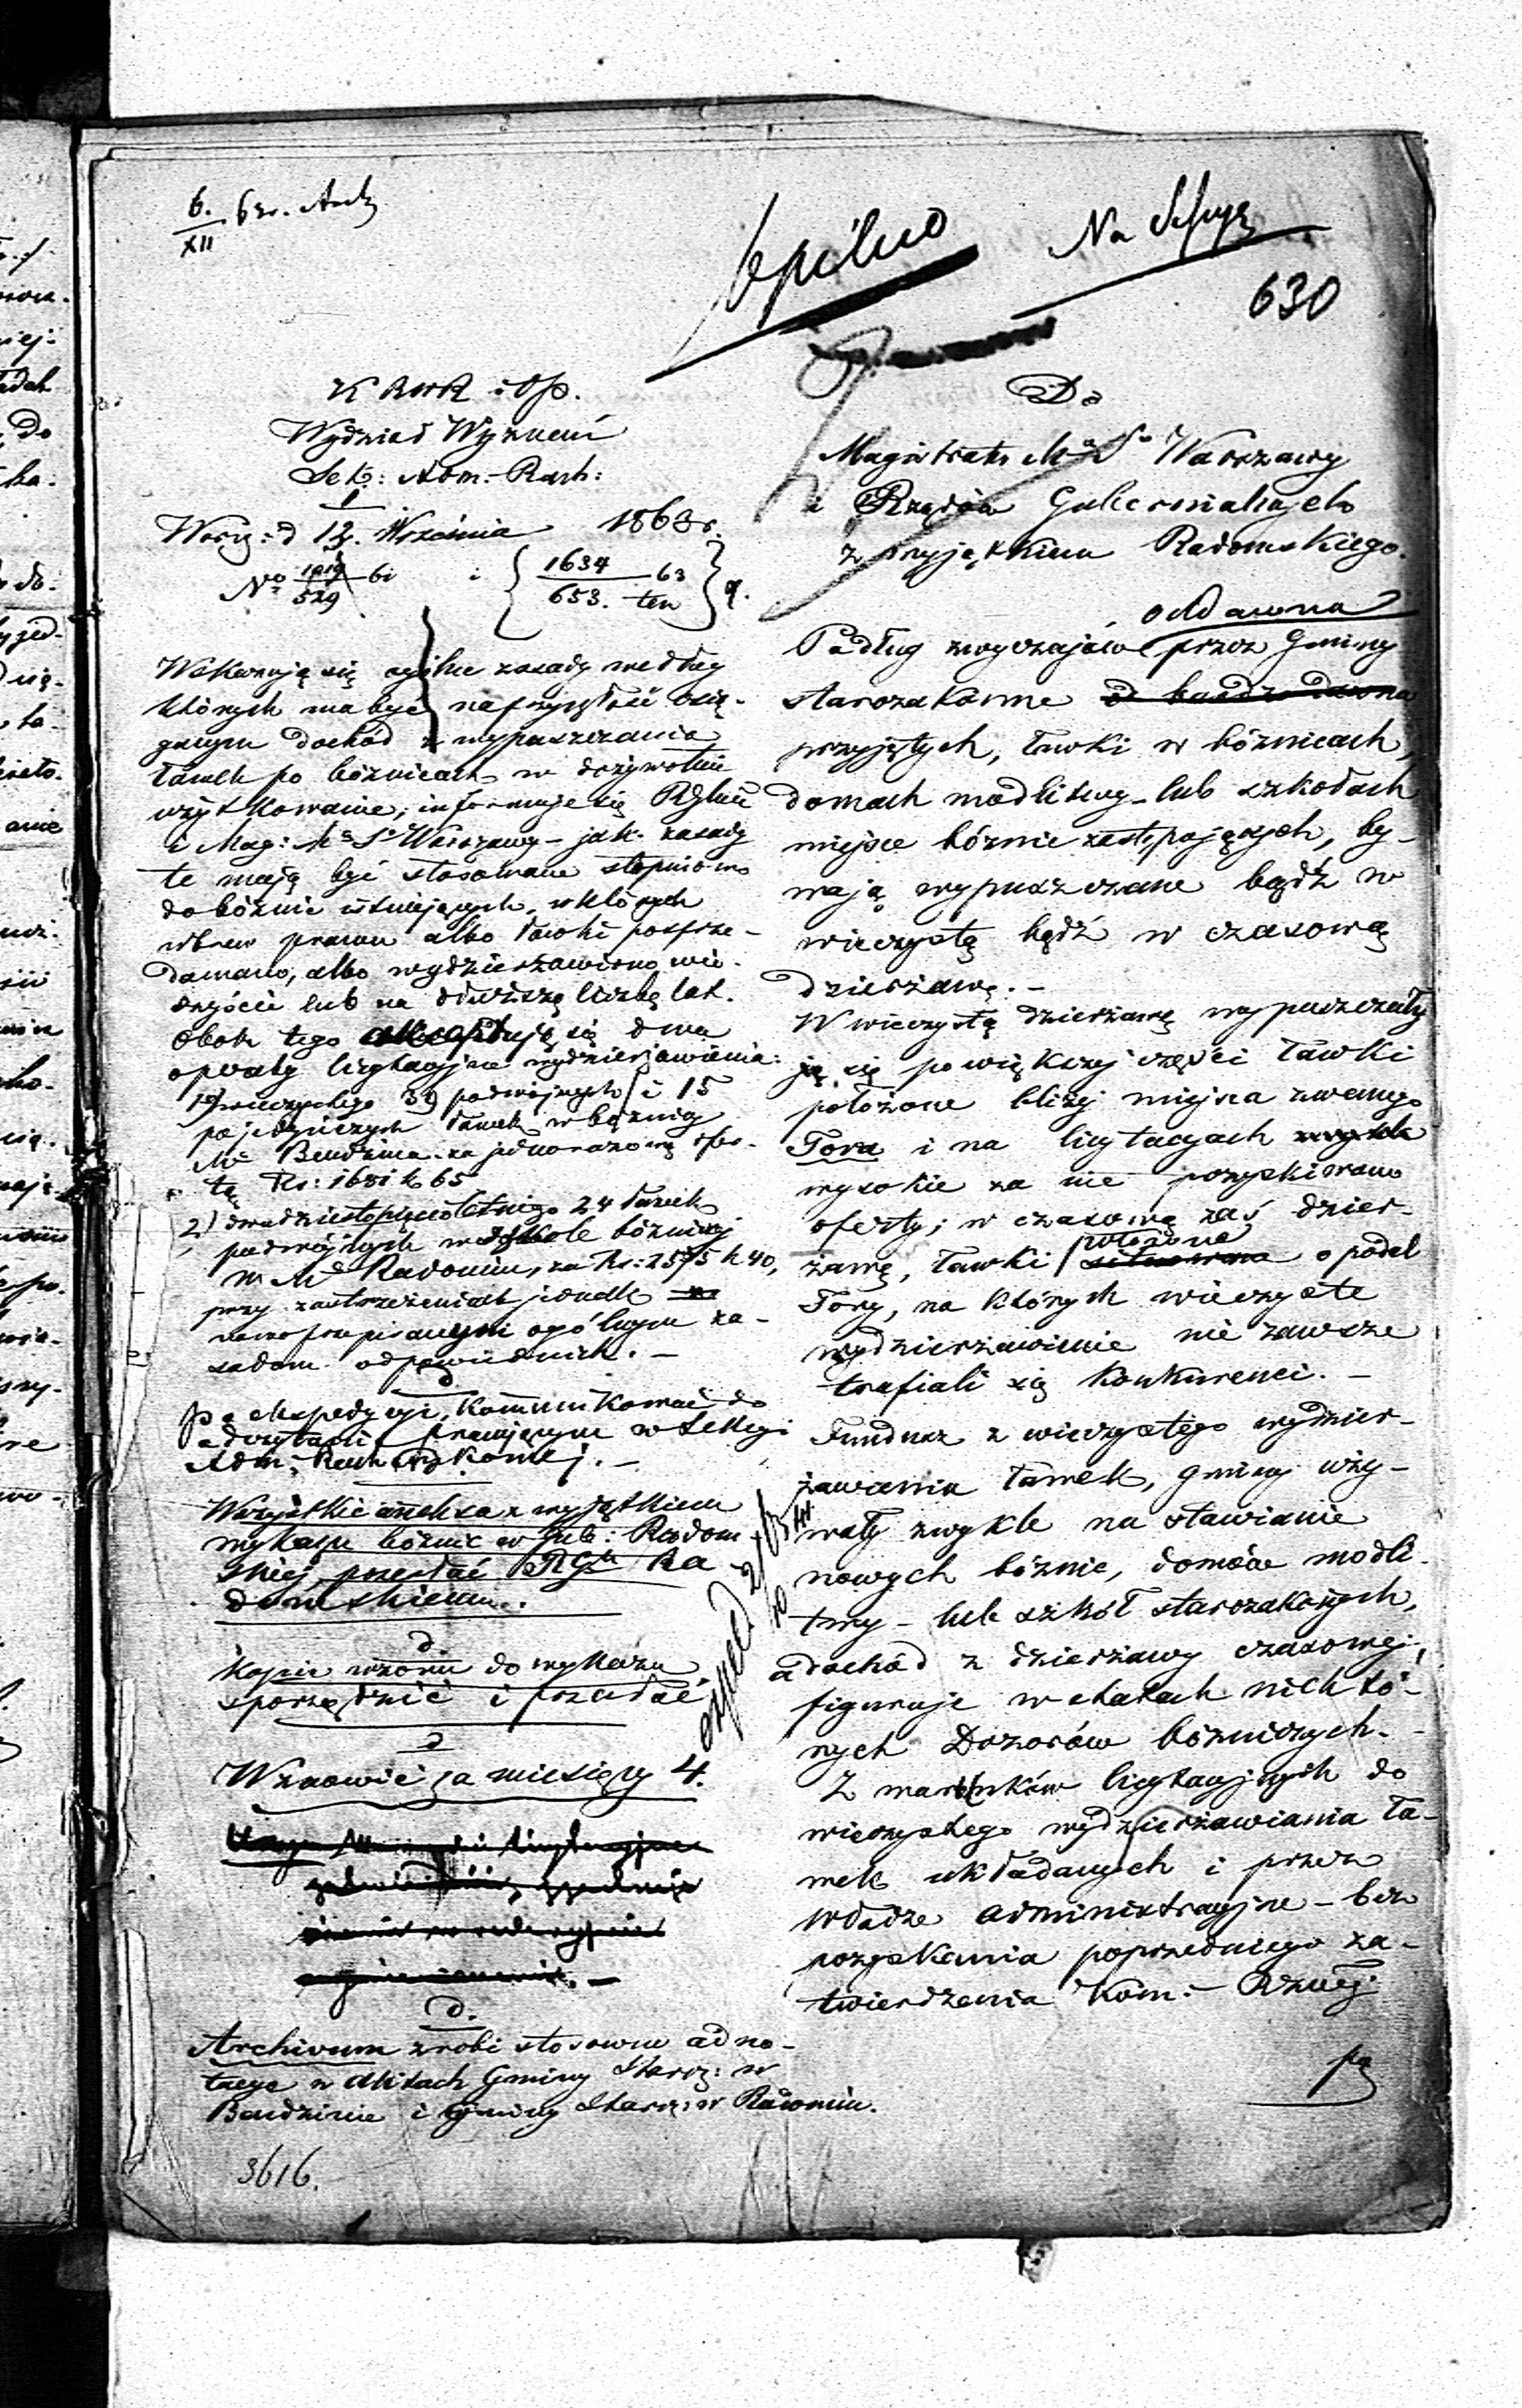 6./XII 63r.
pilno
Na Sessyę
630
K R W R i O P.
Wydział Wyznań
Sek: Adm.-Rach:
Warsz: d 12. Września 1863 r.
No 1019/529 61 i { 1634/653. 63 ten }
Wskazują się ogólne zasady według
których ma być na przyszłość osią-
ganym dochód z wypuszczania
ławek po bóżnicach w dożywotnie
użytkowanie; informuje się RGlne
i Mag: Ma So Warszawy - jak zasady
te mają być stosowane stopniowo
do bóżnic istniejących, w których
wbrew prawu albo ławki posprze-
dawano, albo wydzierżawiono wie-
czyście lub na dłuższą liczbę lat.
Obok tego akceptują się dwa
operaty licytacyjne wydzierżawienia:
1) wieczystego 39 podwójnych i 15
pojedyńczych ławek w bóżnicy
Ma Bendzina za jednorazową opła-
tę Rs: 1681 k 65
2) dwudziestopięcioletniego 24 ławek
podwójnych w szkole bóżnicy
w Mie Radomiu, za Rs: 2575 k 40,
przy zastrzeżeniach jednak
nowoprzepisanym ogólnym za-
sadom odpowiednich. -
d
Po expedycyi, kommunikować do
odczytania pracującym w Sekcyi
Adm; Rach
Wszystkie annexa z wyjątkiem
wykazu bóżnic w Gub: Radom
skiej, przesłać RGu Ra
domskiemu.
d.
Kopię wzoru do wykazu
sporządzić i przesłać
d
Wznowić za miesięcy 4.
d.
Archivum zrobi stosowne adno-
tacye w aktach Gminy Starz: w
Bendzinie i gminy Starz: w Radomiu.
3616.
Do
Magistratu Ma So Warszawy
i Rządów Gubernialnych
z wyjątkiem Radomskiego.
oddawna
Podług zwyczajów przez Gminy
starozakonne od bardzo dawna
przyjętych, ławki w bóżnicach,
domach modlitwy - lub szkołach
miejsce bóżnic zastępujących, by-
wają wypuszczane bądź w
wieczystą bądź w czasową
dzierżawę. -
W wieczystą dzierżawę wypuszczały
się po większej części ławki
położone bliżej miejsca zwanego
Tora i na licytacyach zwykle
wysokie za nie pozyskiwano
oferty; w czasową zaś dzier-
położone
żawę, ławki sytuowane opodal
Tory, na których wieczyste
wydzierżawienie nie zawsze
trafiali się konkurenci. -
Fundusz z wieczystego wydzier-
żawienia ławek, gminy uży-
wały zwykle na stawianie
nowych bóżnic, domów modli-
twy - lub szkół starozakonnych,
a dochód z dzierżawy czasowej,
figuruje w etatach niektó-
rych Dozorów bóżniczych.
Z warunków licytacyjnych do
wieczystego wydzierżawiania ła-
wek układanych i przez
władze administracyjne - bez
pozyskania poprzedniego za-
twierdzenia Kom: Rząej